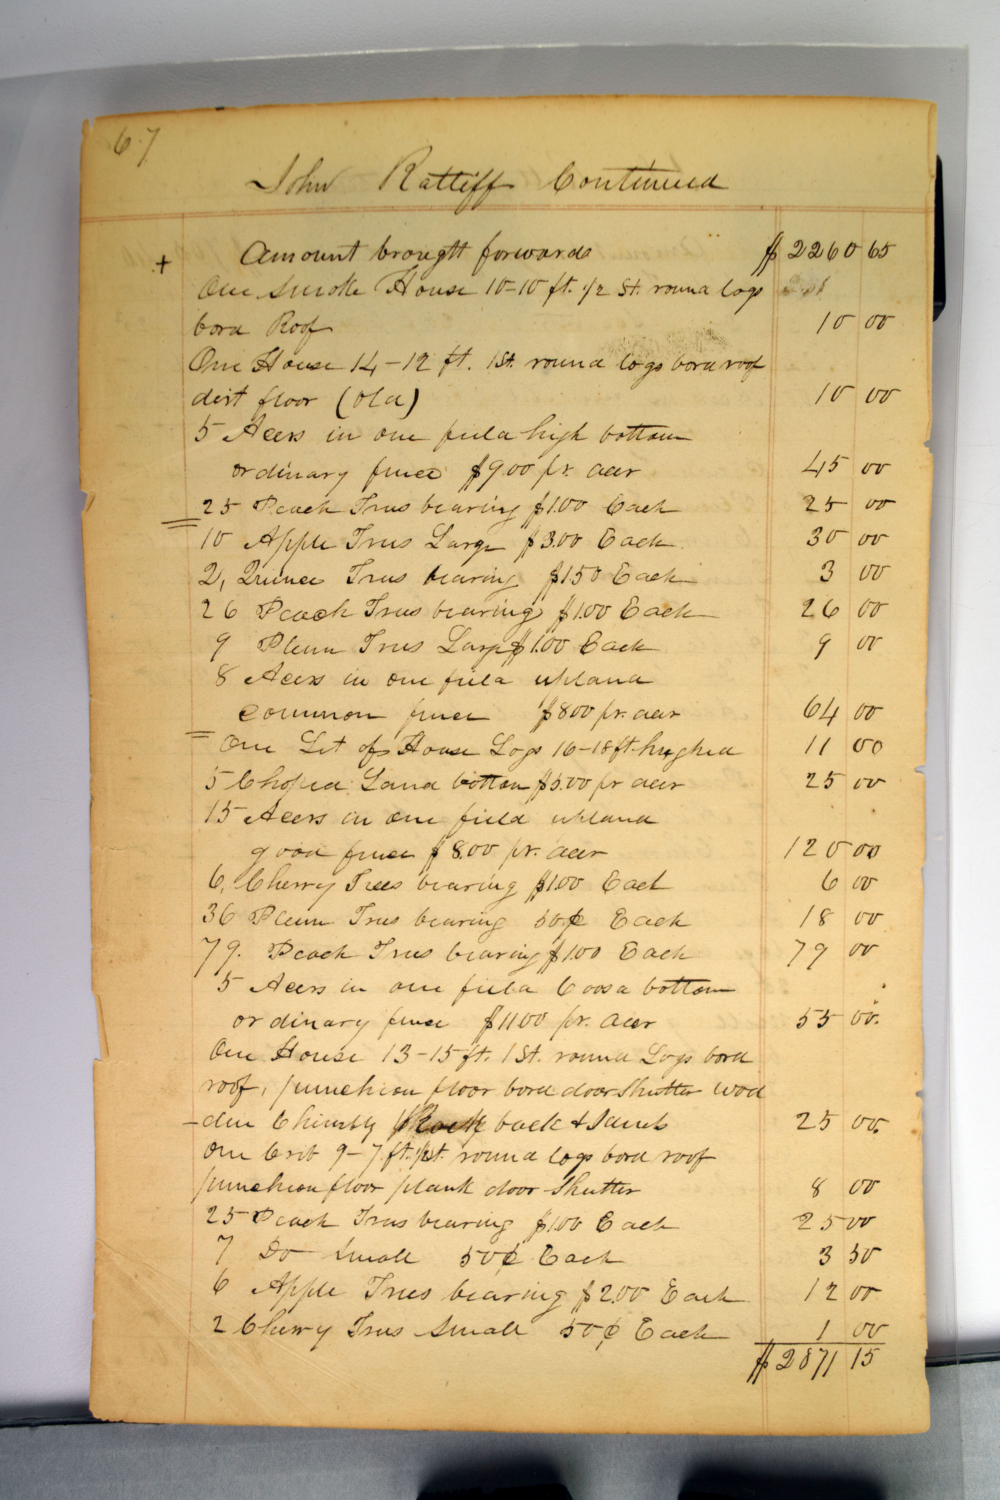 67
John Ratliff Continued
+ Amount brought forwards $2260 65
One Smoke House 10-10 ft. 1/2 St. round logs
bord Roof 10 00
One House 14-12 ft. 1St. round logs bord roof
dirt floor (old) 10 00
5 Acers in one field high bottom
ordinary fence $9.00 pr. acer 45 00
25 Peach Trees bearing $1.00 Each 25 00
10 Apple Trees Large $3.00 Each 30 00
2, Quince Trees bearing $1.50 Each 3 00
26 Peach Trees bearing $1.00 Each 26 00
9 Plum Trees Large $1.00 Each 9 00
8 Acers in one field upland
common fence $8.00 pr. acer 64 00
One Set of House Logs 16-18 ft. hughed 11 00
5 Choped Land bottom $5.00 pr acer 25 00
15 Acers in one field upland
good fence $8.00 pr. acer 120 00
6, Cherry Trees bearing $1.00 Each 6 00
36 Plum Trees bearing 50¢ Each 18 00
79. Peach Trees bearing $1.00 Each 79 00
5 Acers in one field Coosa bottom
ordinary fence $11.00 pr. Acer 55 00.
One House 13-15 ft. 1St. round Logs bord
roof, puncheon floor bord door Shutter wod
den Chimbly Rock back & Jambs 25 00.
One Crib 9-7 ft. 1/2 st. round logs bord roof
puncheon floor plank door Shutter 8 00
25 Peach Trees bearing $1.00 Each 25 00
7 Do Small 50¢ Each 3 50
6 Apple Trees bearing $2.00 Each 12 00
2 Cherry Trees Small 50¢ Each 1 00
$2871 15